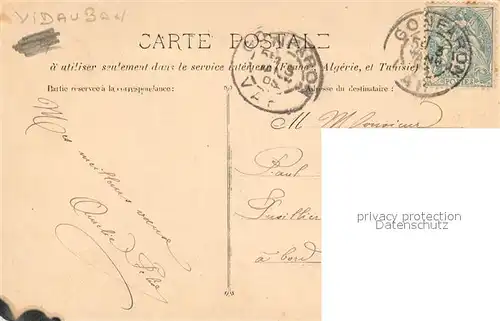 VIDAUBAN
CARTE POSTALE
à utiliser seulement dans le service intérieur (France, Algérie, et Tunisie)
Partie réservée à la correspondance:
Adresse du destinataire:
GONFARON
VAR
GONFARON
M Monsieur
Paul
Fusillier
à bord
Mes meilleurs vœux
privacy protection
Datenschutz